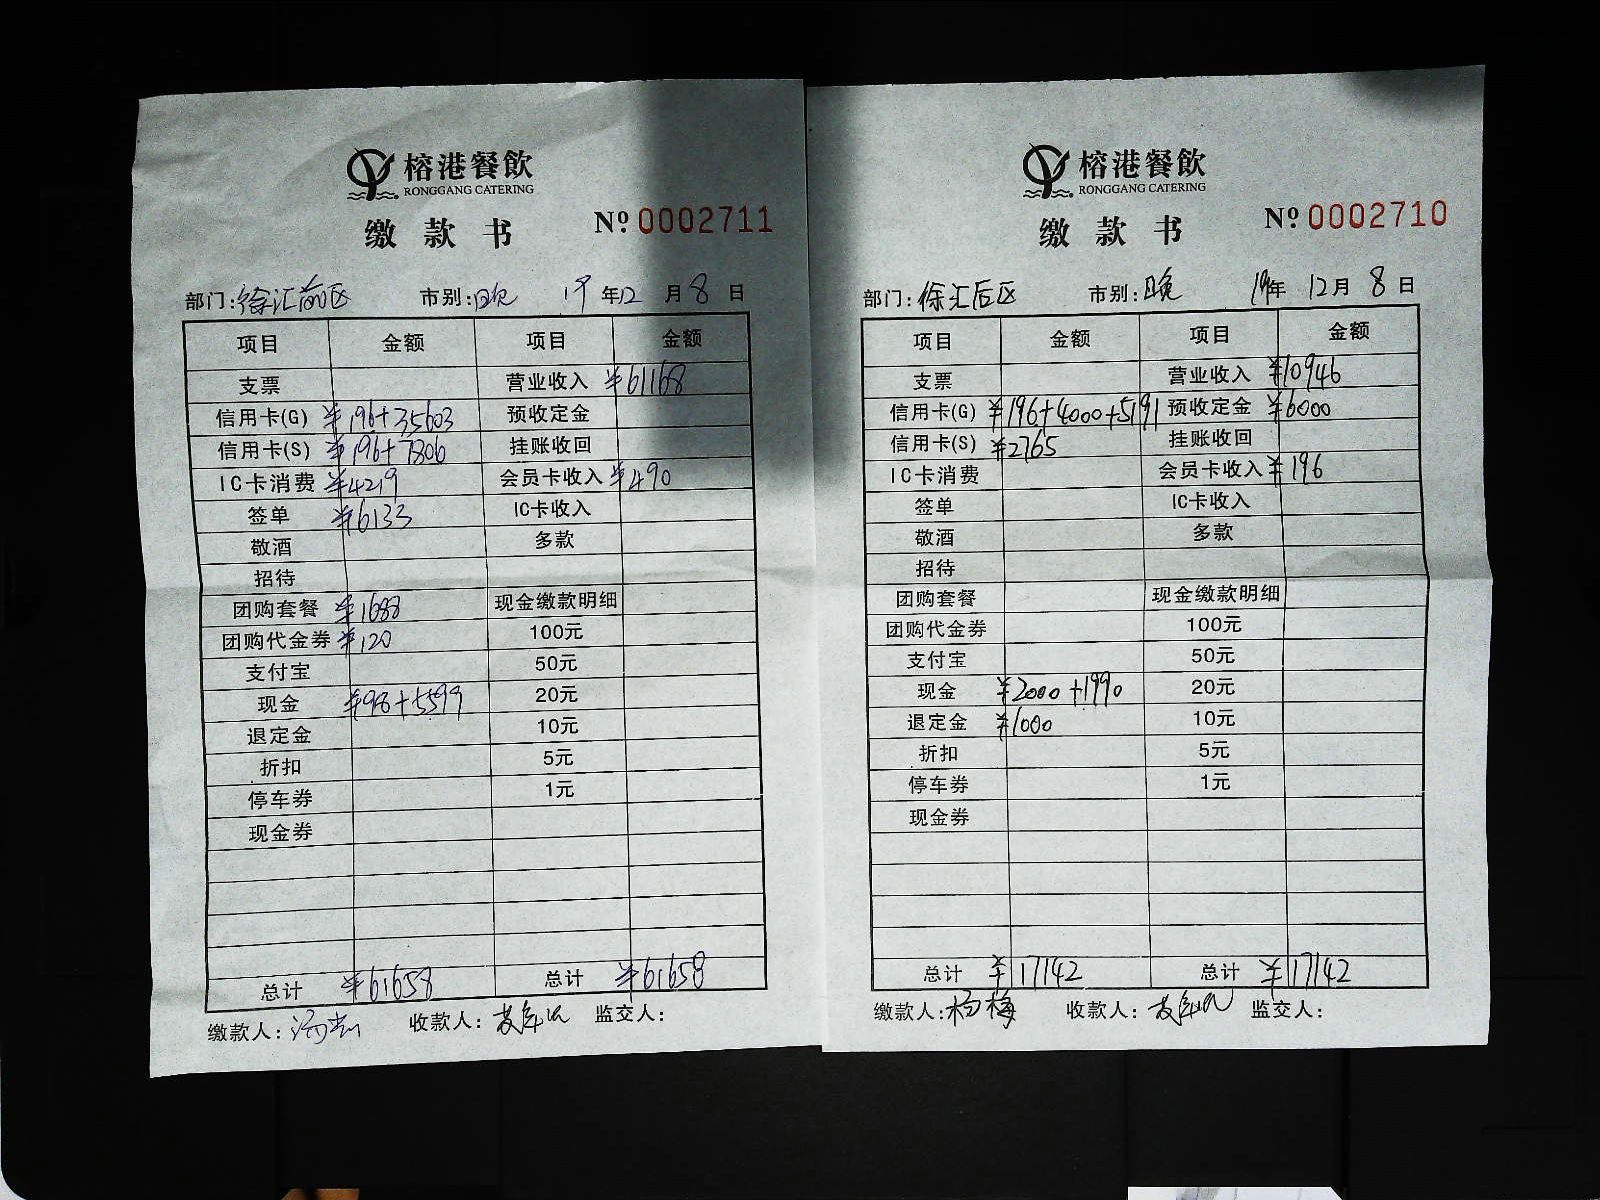 榕港餐飲
RONGGANG CATERING
缴款书 Nº 0002711
部门:徐汇前区 市别:晚 19年12月8日
项目 金额 项目 金额
支票 营业收入 ¥61168
信用卡(G) ¥196+35603 预收定金
信用卡(S) ¥196+7806 挂账收回
IC卡消费 ¥4219 会员卡收入 ¥490
签单 ¥6133 IC卡收入
敬酒 多款
招待
团购套餐 ¥1688 现金缴款明细
团购代金券 ¥120 100元
支付宝 50元
现金 ¥98+5599 20元
退定金 10元
折扣 5元
停车券 1元
现金券
总计 ¥61658 总计 ¥61658
缴款人: 收款人: 监交人:
榕港餐飲
RONGGANG CATERING
缴款书 Nº 0002710
部门:徐汇后区 市别:晚 19年12月8日
项目 金额 项目 金额
支票 营业收入 ¥10946
信用卡(G) ¥196+4000+5191 预收定金 ¥6000
信用卡(S) ¥2765 挂账收回
IC卡消费 会员卡收入 ¥196
签单 IC卡收入
敬酒 多款
招待
团购套餐 现金缴款明细
团购代金券 100元
支付宝 50元
现金 ¥2000+1990 20元
退定金 ¥1000 10元
折扣 5元
停车券 1元
现金券
总计 ¥17142 总计 ¥17142
缴款人:杨梅 收款人: 监交人: